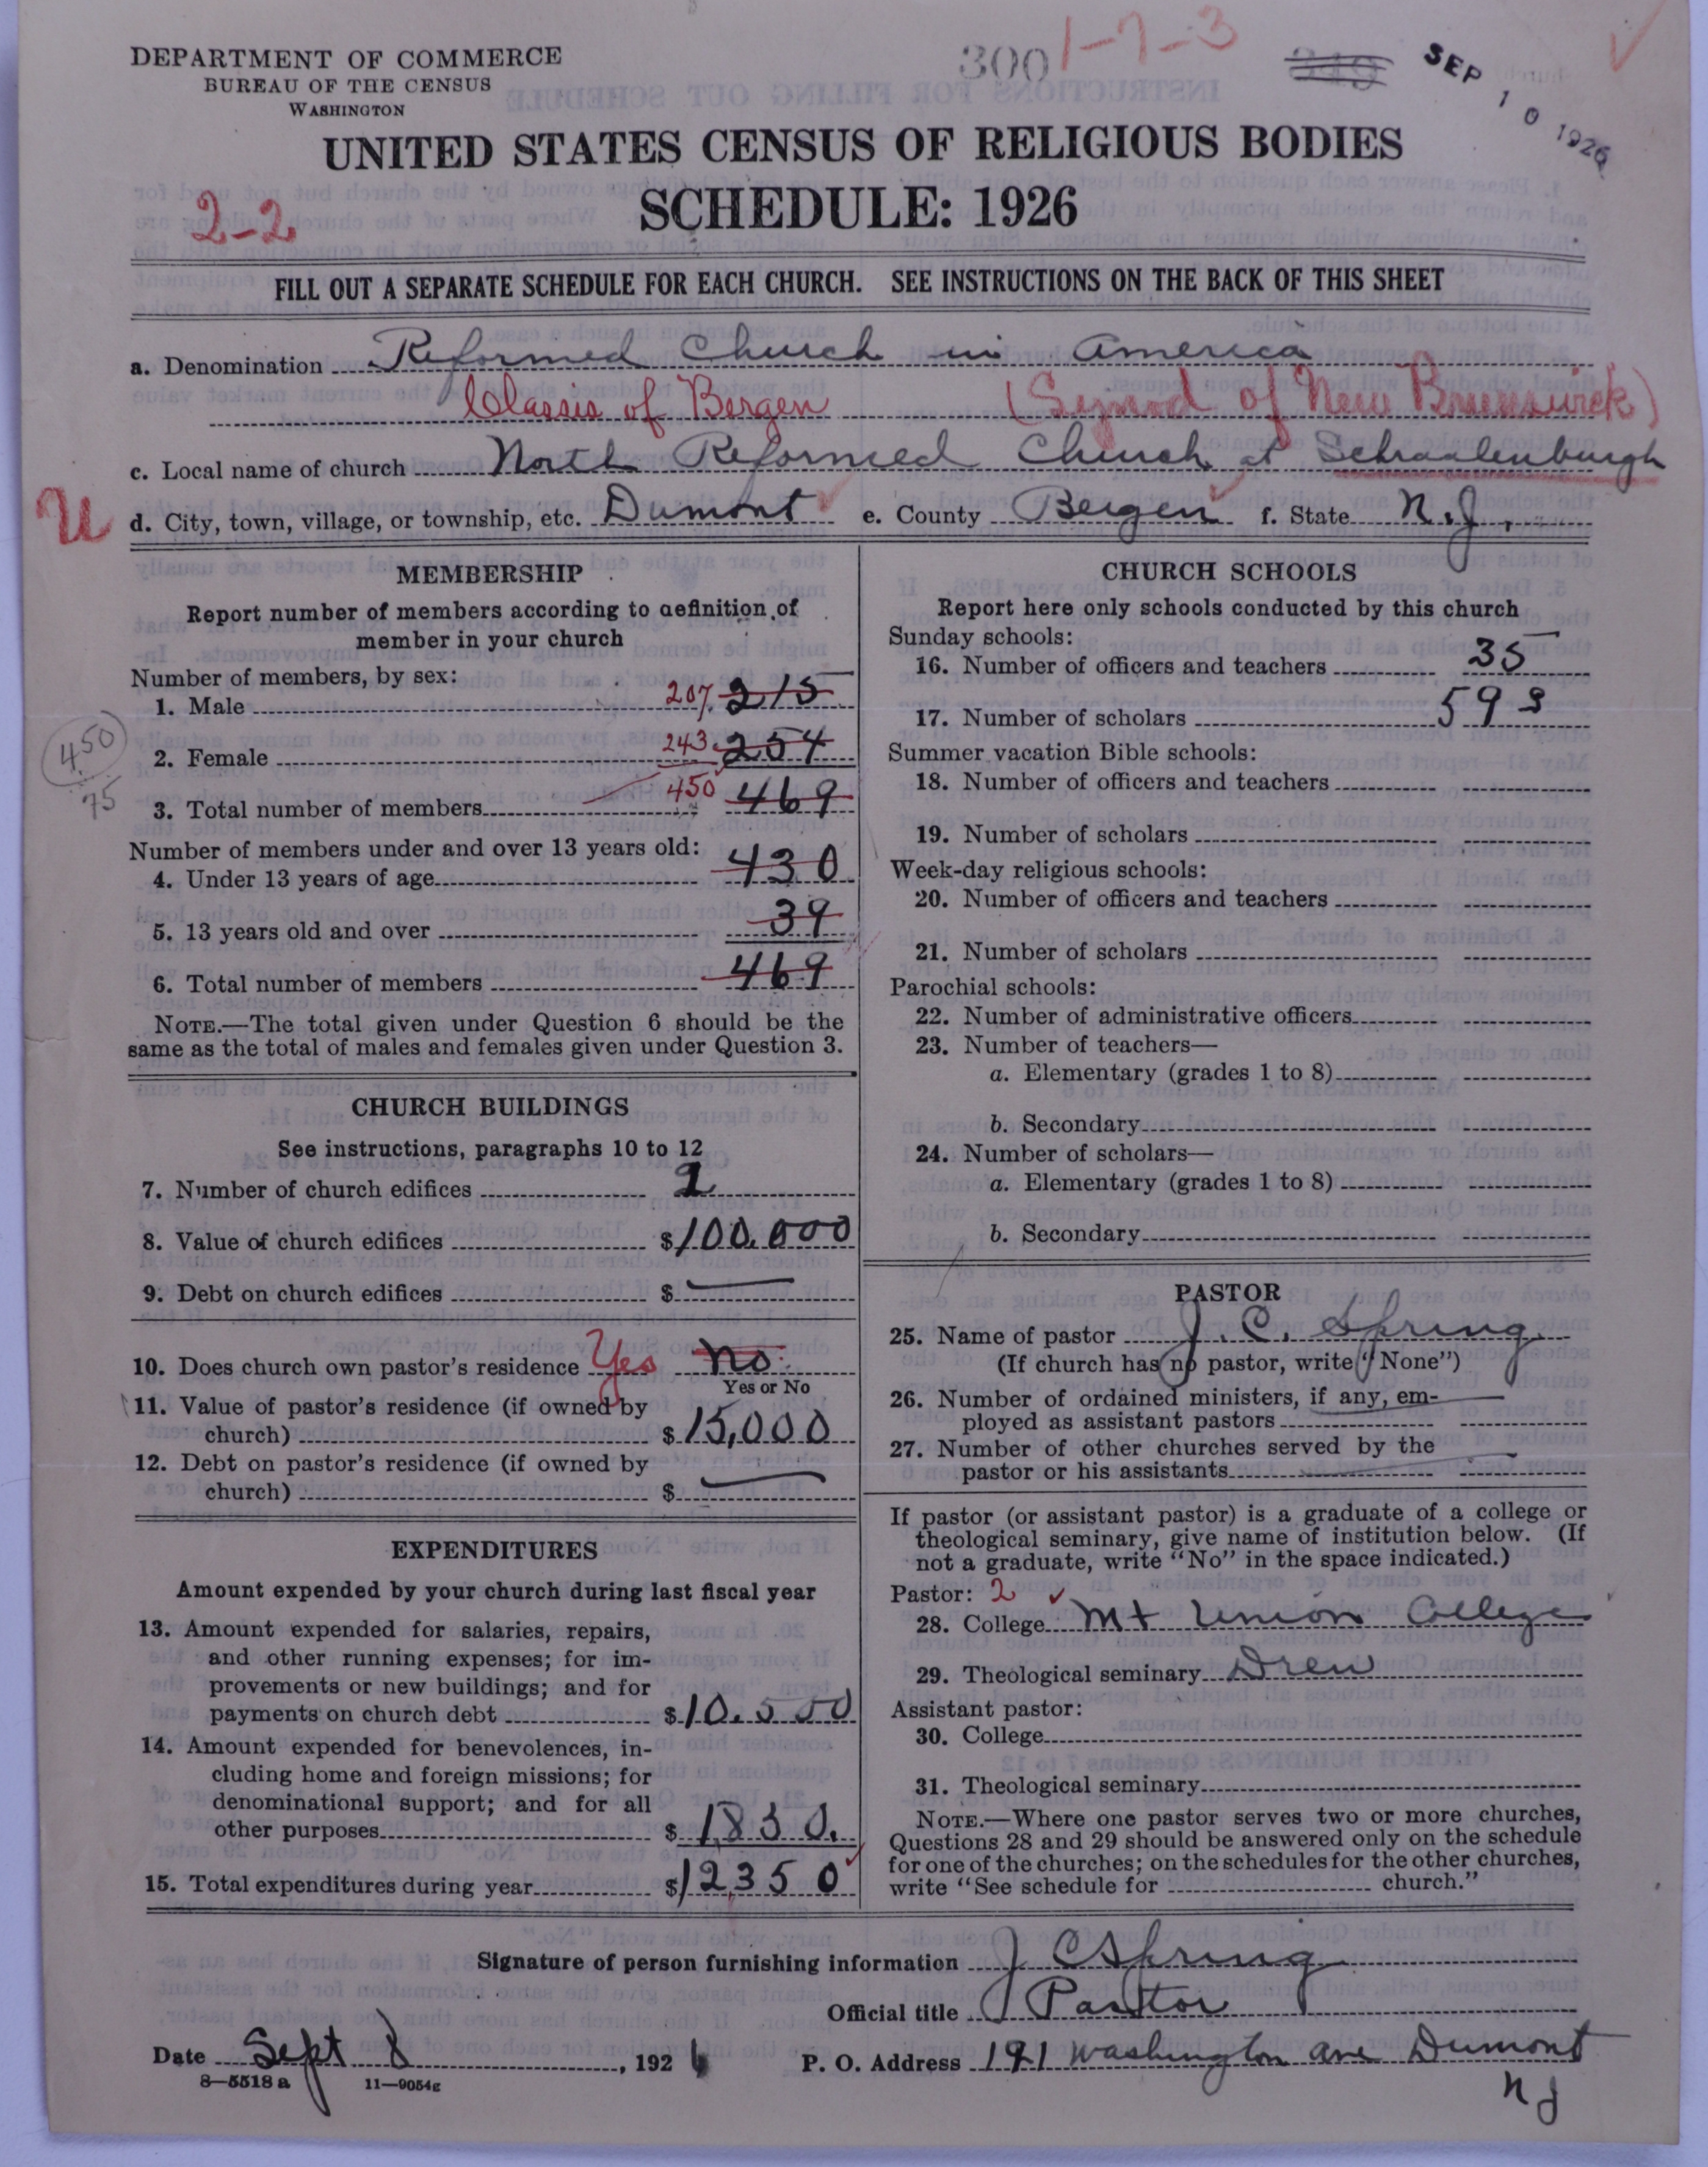 DEPARTMENT OF COMMERCE
BUREAU OF THE CENSUS
WASHINGTON
300 1-7-3
SEP 10 1926
UNITED STATES CENSUS OF RELIGIOUS BODIES
SCHEDULE: 1926
2-2
FILL OUT A SEPARATE SCHEDULE FOR EACH CHURCH. SEE INSTRUCTIONS ON THE BACK OF THIS SHEET
a. Denomination Reformed Church in America
Classis of Bergen (Synod of New Brunswick)
c. Local name of church North Reformed Church at Schraalenburgh
U
d. City, town, village, or township, etc. Dumont e. County Bergen f. State N.J.
MEMBERSHIP
Report number of members according to definition of
member in your church
Number of members, by sex:
1. Male 207 215
2. Female 243 254
450
75
3. Total number of members 450 469
Number of members under and over 13 years old:
4. Under 13 years of age 430
5. 13 years old and over 39
6. Total number of members 469
NOTE.—The total given under Question 6 should be the
same as the total of males and females given under Question 3.
CHURCH BUILDINGS
See instructions, paragraphs 10 to 12
7. Number of church edifices
8. Value of church edifices $100.000
9. Debt on church edifices $ —
10. Does church own pastor's residence Yes No
Yes or No
11. Value of pastor's residence (if owned by
church) $15,000
12. Debt on pastor's residence (if owned by
church) $ —
EXPENDITURES
Amount expended by your church during last fiscal year
13. Amount expended for salaries, repairs,
and other running expenses; for im-
provements or new buildings; and for
payments on church debt $10.500
14. Amount expended for benevolences, in-
cluding home and foreign missions; for
denominational support; and for all
other purposes $1830.
15. Total expenditures during year $12350
CHURCH SCHOOLS
Report here only schools conducted by this church
Sunday schools:
16. Number of officers and teachers 35
17. Number of scholars 593
Summer vacation Bible schools:
18. Number of officers and teachers
19. Number of scholars
Week-day religious schools:
20. Number of officers and teachers
21. Number of scholars
Parochial schools:
22. Number of administrative officers
23. Number of teachers—
a. Elementary (grades 1 to 8)
b. Secondary
24. Number of scholars—
a. Elementary (grades 1 to 8)
b. Secondary
PASTOR
25. Name of pastor J. C. Spring
(If church has no pastor, write "None")
26. Number of ordained ministers, if any, em-
ployed as assistant pastors —
27. Number of other churches served by the
pastor or his assistants —
If pastor (or assistant pastor) is a graduate of a college or
theological seminary, give name of institution below. (If
not a graduate, write "No" in the space indicated.)
Pastor: 2 ✓
28. College Mt Union College
29. Theological seminary Drew
Assistant pastor:
30. College
31. Theological seminary
NOTE.—Where one pastor serves two or more churches,
Questions 28 and 29 should be answered only on the schedule
for one of the churches; on the schedules for the other churches,
write "See schedule for church."
Signature of person furnishing information J C Spring
Official title Pastor
Date Sept 8, 1926 P. O. Address 191 Washington Ave Dumont
N J
8—5518 a 11—9054g